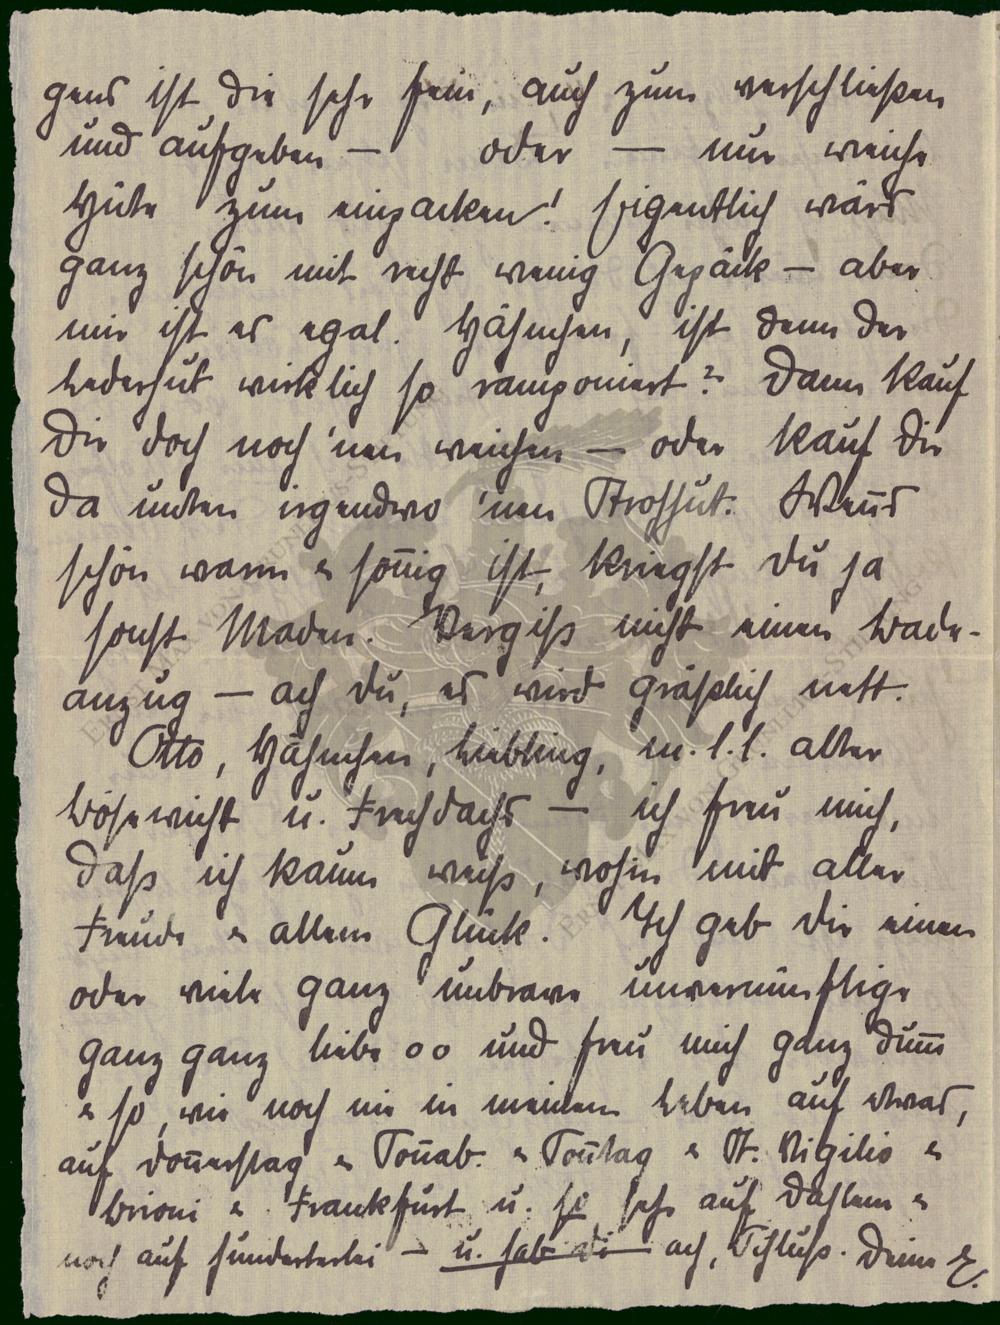 gens ist die sehr fein, auch zum verschließen
und aufgeben — oder — nur weiche
Hüte zum einpacken! Eigentlich wärs
ganz schön mit recht wenig Gepäck — aber
mir ist es egal. Hähnchen, ist denn der
Lederhut wirklich so ramponiert? Dann kauf
Dir doch noch 'nen weichen — oder kauf Dir
da unten irgendwo 'nen Strohhut. Wenn's
schön warm & soñig ist, kriegst Du ja
sonst Maden. Vergiß nicht einen Bade-
anzug — ach Du, es wird gräßlich nett.
Otto, Hähnchen, Liebling, m. l. l. alter
Bösewicht u. Frechdachs — ich freu mich,
daß ich kaum weiß, wohin mit aller
Freude & allem Glück. Ich geb Dir einen
oder viele ganz unbrave unvernünftige
ganz ganz liebe oo und freu mich ganz dum̄
& so, wie noch nie in meinem Leben auf etwas,
auf Doñerstag & Soñab. & Soñtag & St. Vigilio &
Brioni & Frankfurt u. so sehr auf Dahlem &
noch auf hunderterlei — u. hab Di— ach, Schluß. Deine E.
ERNST UND